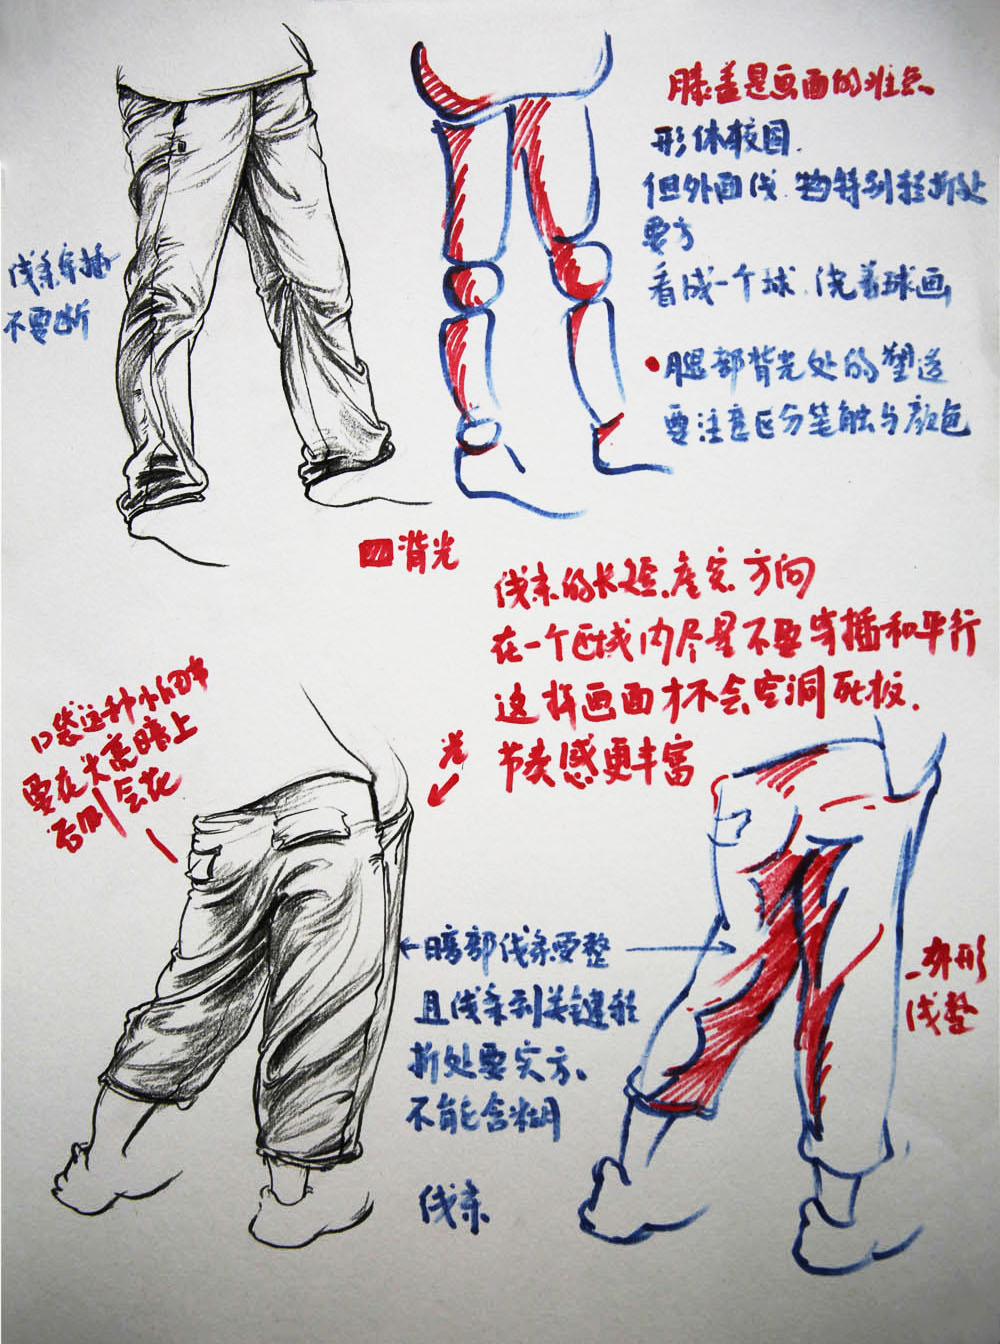 膝盖是画面的难点
形体较圆.
但外面线.物特别转折处
要方
看成一个球.绕着球画
腿部背光处的塑造
要注意区分笔触与颜色
线条穿插
不要断
背光
线条的长短.虚实.方向
在一个区域内尽量不要穿插和平行
这样画面才不会空洞死板.
节奏感更丰富
口袋这种小细节
要在大亮暗上
否则会花
光
←暗部线条要整
且线条到关键转
折处要实方、
不能含糊
线条
外形
线整